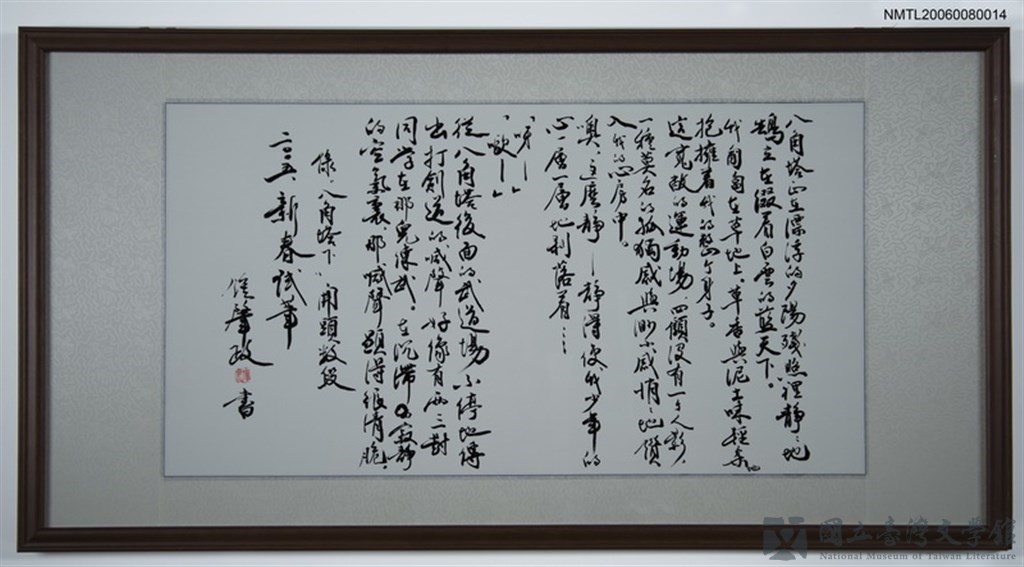 NMTL20060080014
八角塔正在漂浮的夕陽殘照裡靜靜地
鵠立在綴着白雲的藍天下。
我匍匐在草地上。草香與泥土味輕柔地
抱擁着我的整个身子。
這寬敞的運動場，四顧沒有一个人影，
一種莫名的孤獨感與渺小感悄悄地潰
入我的心房中。
噢，這麼靜——靜得使我少年的
心一層一層地剝落着……
「呀——」
「歐——」
從八角塔後面的武道場不停地傳
出打劍道的喊聲，好像有兩三對
同学在那兒練武。在沉滯的寂靜
的空氣裏，那喊聲顯得很清脆。
錄「八角塔下」開頭数段
二〇〇五、新春試筆
鍾肇政
書
國立臺灣文學館
National Museum of Taiwan Literature